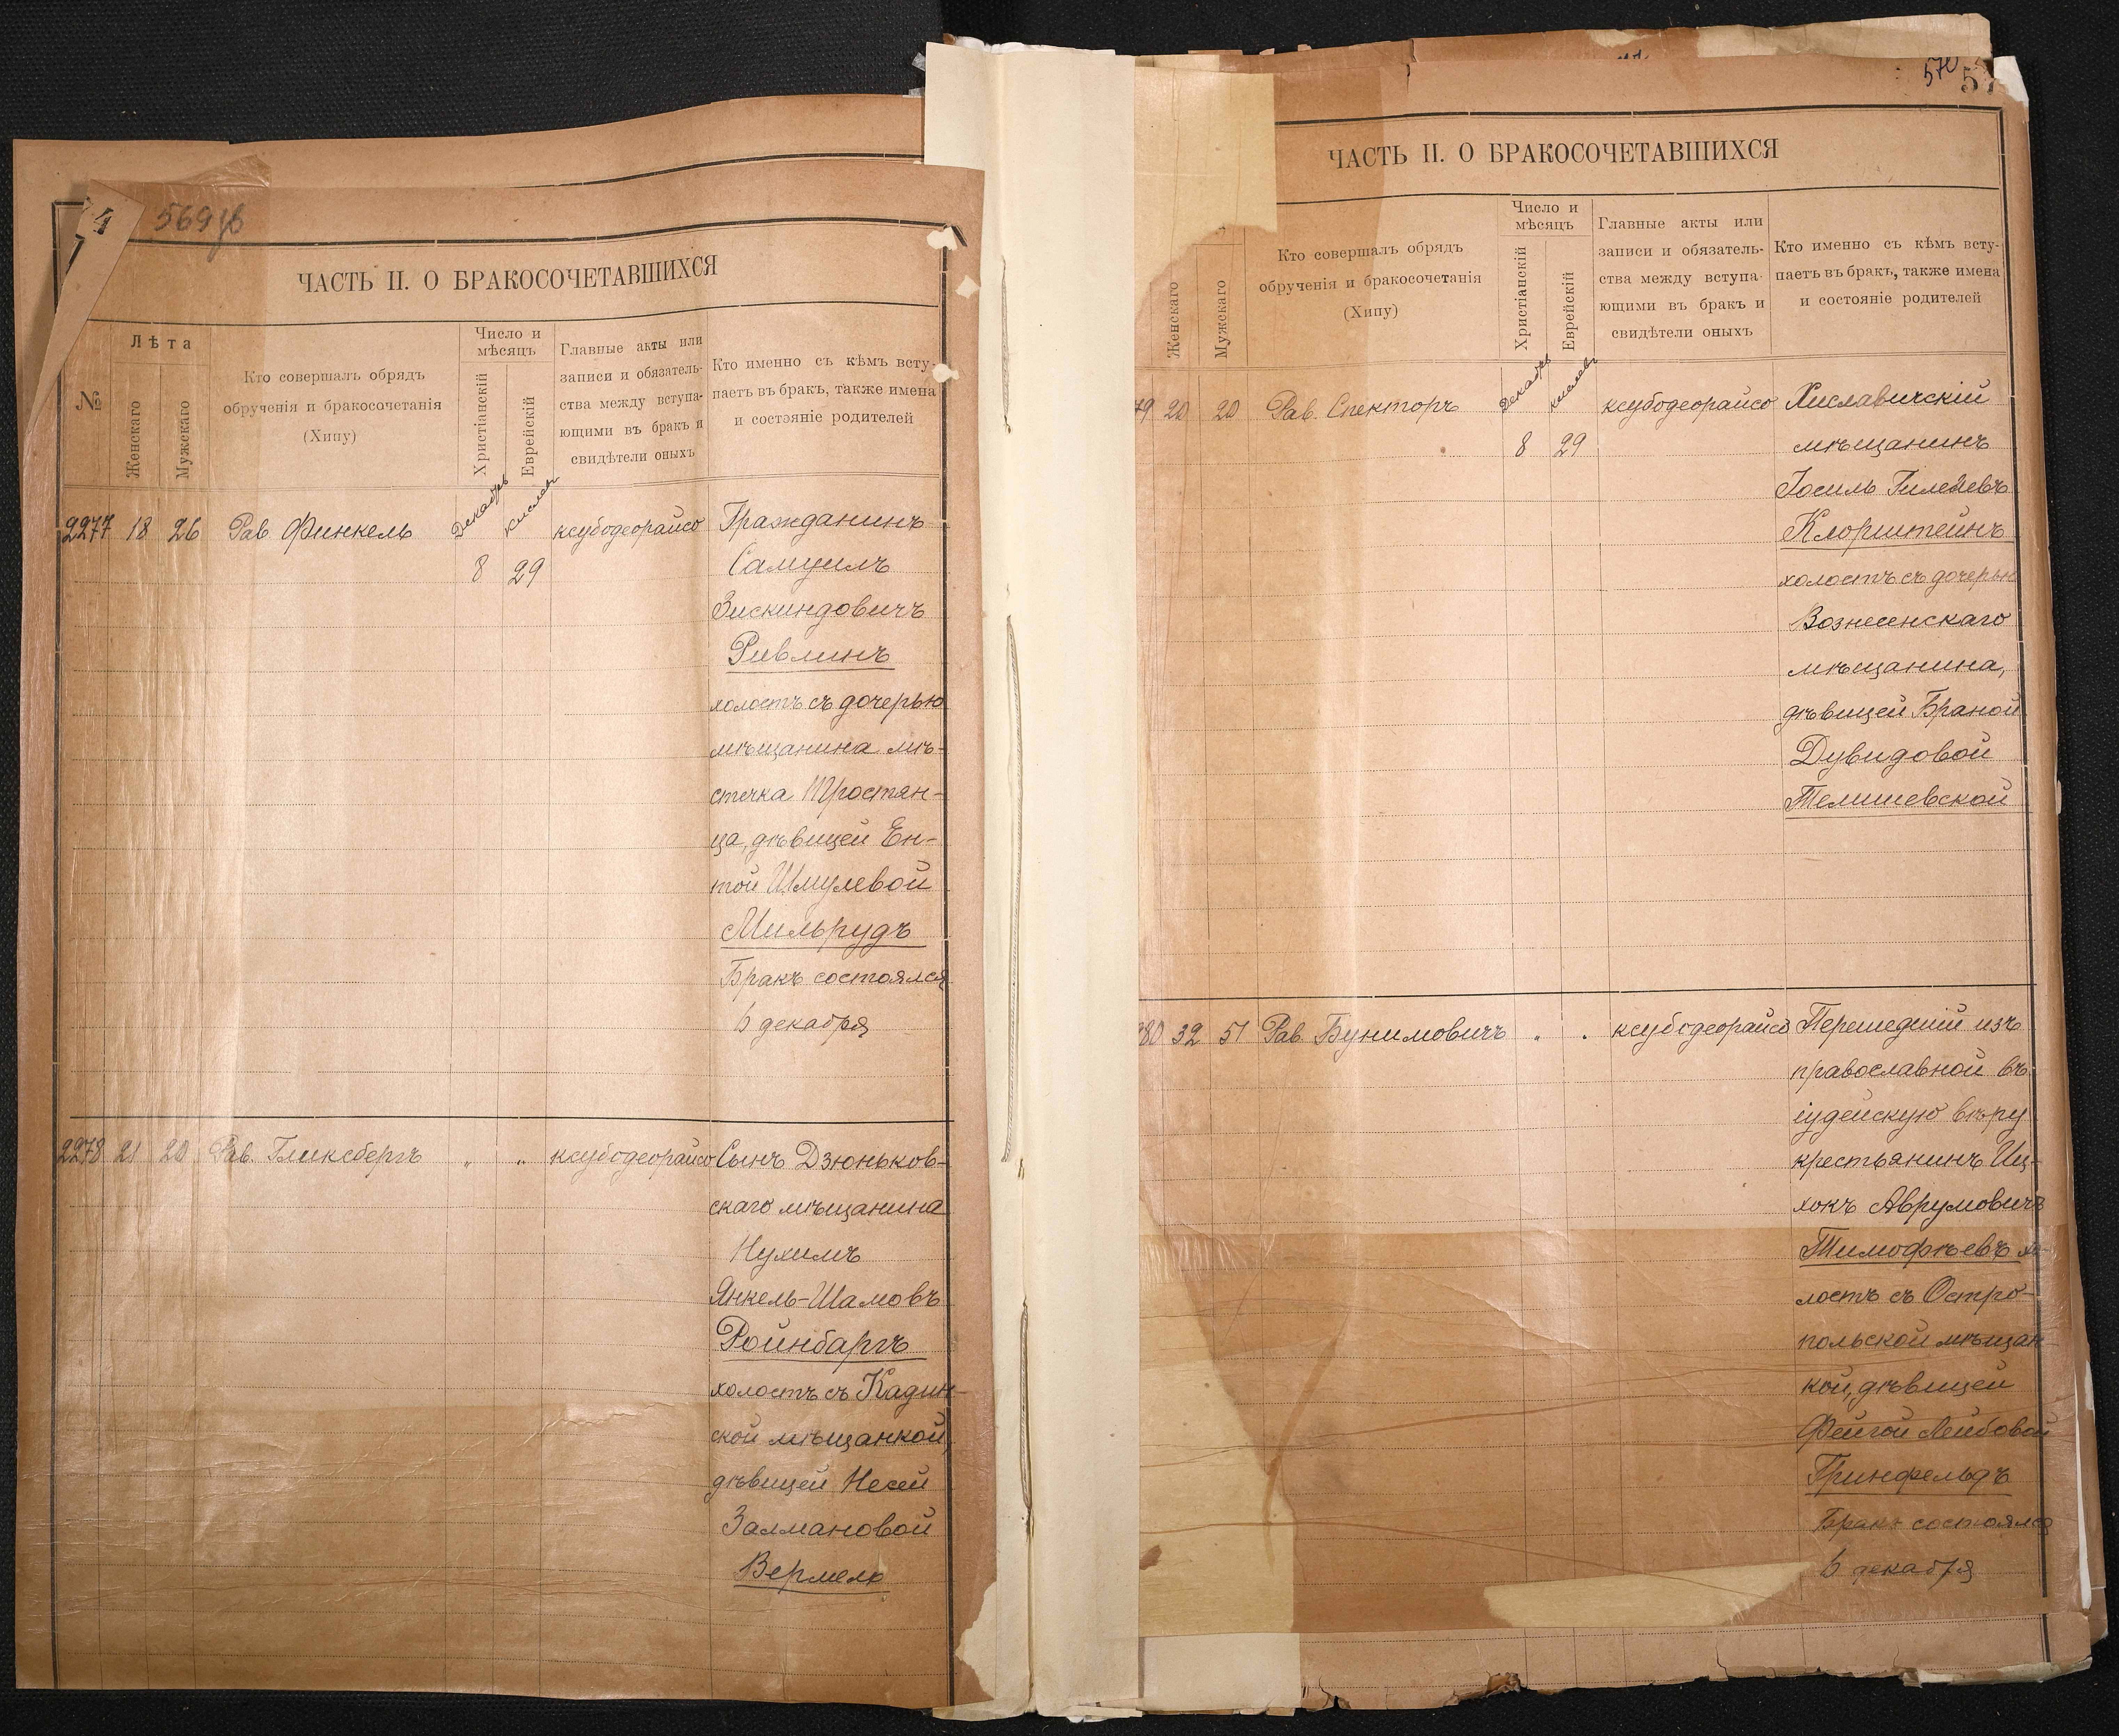 4
569 об
ЧАСТЬ II. О БРАКОСОЧЕТАВШИХСЯ
№
Лѣта
Женскаго
Мужскаго
Кто совершалъ обрядъ
обрученія и бракосочетанія
(Хипу)
Число и
мѣсяцъ
Христіанскій
Еврейскій
Главные акты или
записи и обязатель-
ства между вступа-
ющими въ бракъ и
свидѣтели оныхъ
Кто именно съ кѣмъ всту-
паетъ въ бракъ, также имена
и состояніе родителей
2277 18 26 Рав. Финкель Декабрь кислевъ ксубодеорайсо Гражданинъ
8 29 Самуилъ
Зискиндовичъ
Ривлинъ
холостъ съ дочерью
мѣщанина мѣ-
стечка Тростян-
ца, дѣвицей Ен-
той Шмулевой
Мильрудъ
Бракъ состоялся
6 декабря
2278 21 20 Рав. Гликсбергъ " " ксубодеорайсо Сынъ Дзюньков-
скаго мѣщанина
Нухимъ
Янкель-Шамовъ
Ройнбаргъ
холостъ съ Кадин-
ской мѣщанкой,
дѣвицей Несей
Залмановой
Вермель
570
57
ЧАСТЬ II. О БРАКОСОЧЕТАВШИХСЯ
Женскаго
Мужскаго
Кто совершалъ обрядъ
обрученія и бракосочетанія
(Хипу)
Число и
мѣсяцъ
Христіанскій
Еврейскій
Главные акты или
записи и обязатель-
ства между вступа-
ющими въ бракъ и
свидѣтели оныхъ
Кто именно съ кѣмъ всту-
паетъ въ бракъ, также имена
и состояніе родителей
79 20 20 Рав. Спекторъ Декабрь кислевъ ксубодеорайсо Хиславичскій
8 29 мѣщанинъ
Іосиль Гилелевъ
Клорштейнъ
холостъ съ дочерью
Вознесенскаго
мѣщанина,
дѣвицей Браной
Дувидовой
Телишевской
80 32 51 Рав. Бунимовичъ " " ксубодеорайсо Перешедшій изъ
православной въ
іудейскую вѣру
крестьянинъ Иц-
хокъ Аврумовичъ
Тимофѣевъ хо-
лостъ съ Остро-
польской мѣщан-
кой, дѣвицей
Фейгой Лейбовой
Гринфельдъ
Бракъ состоялся
6 декабря